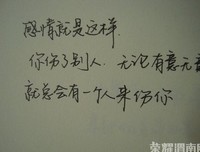 感情就是这样
你伤了别人.无论有意无意
就总会有一个人来伤你
荣耀渭南网